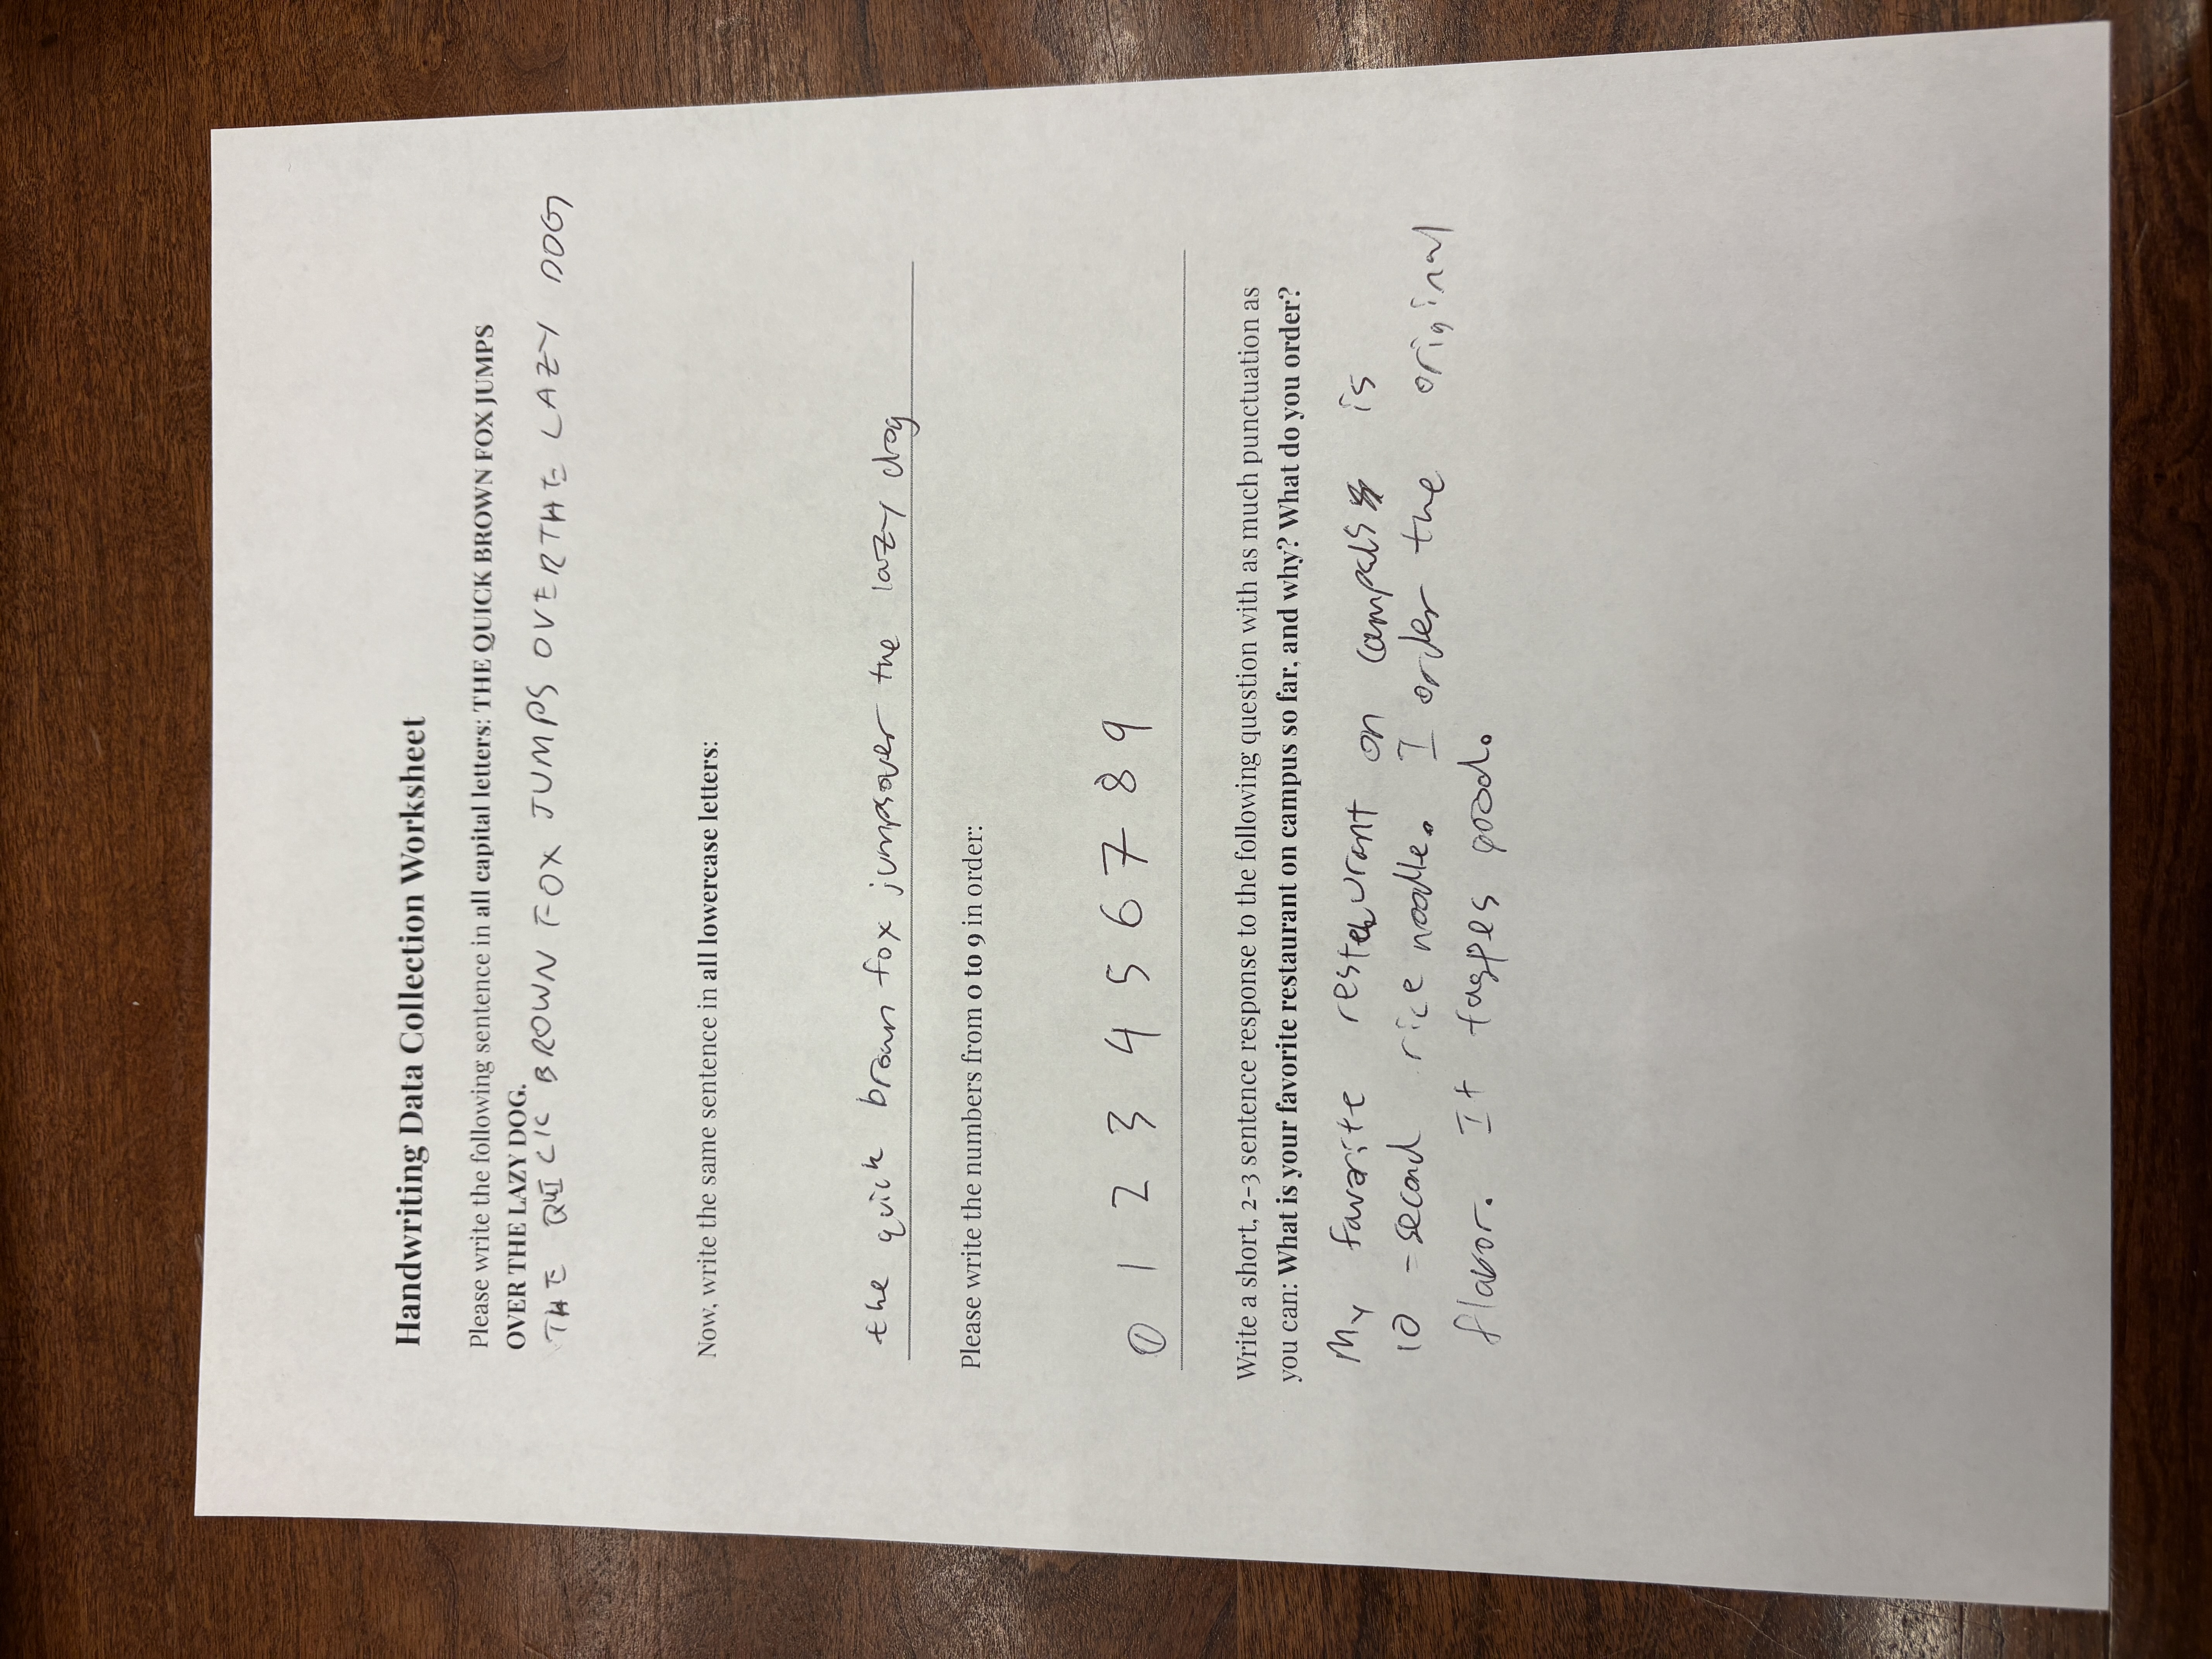 Handwriting Data Collection Worksheet
Please write the following sentence in all capital letters: THE QUICK BROWN FOX JUMPS
OVER THE LAZY DOG.
THE QUICK BROWN FOX JUMPS OVER THE LAZY DOG
Now, write the same sentence in all lowercase letters:
the quick brown fox jumps over the lazy dog
Please write the numbers from 0 to 9 in order:
0 1 2 3 4 5 6 7 8 9
Write a short, 2-3 sentence response to the following question with as much punctuation as
you can: What is your favorite restaurant on campus so far, and why? What do you order?
My favorite restaurant on campus is
10-second rice noodle. I order the original
flavor. It good.